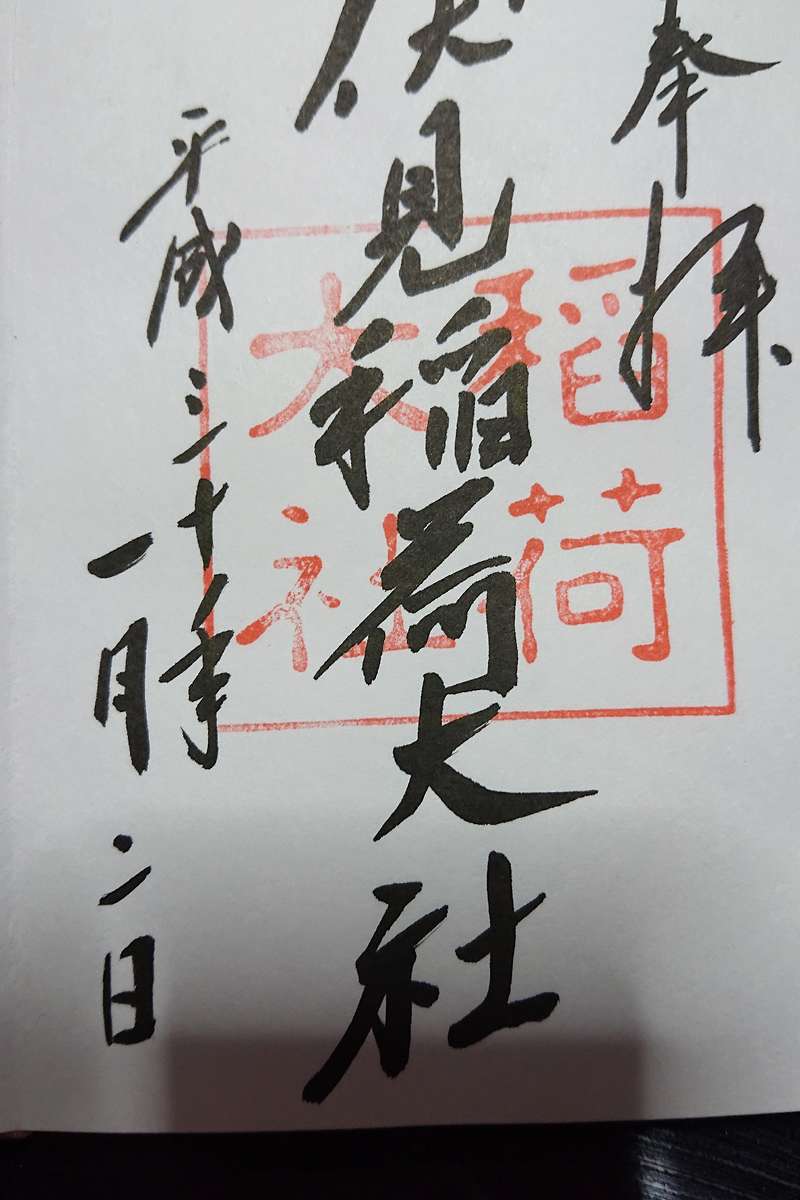 奉拝
伏見稲荷大社
平成三十年
一月二日
稲荷
大社